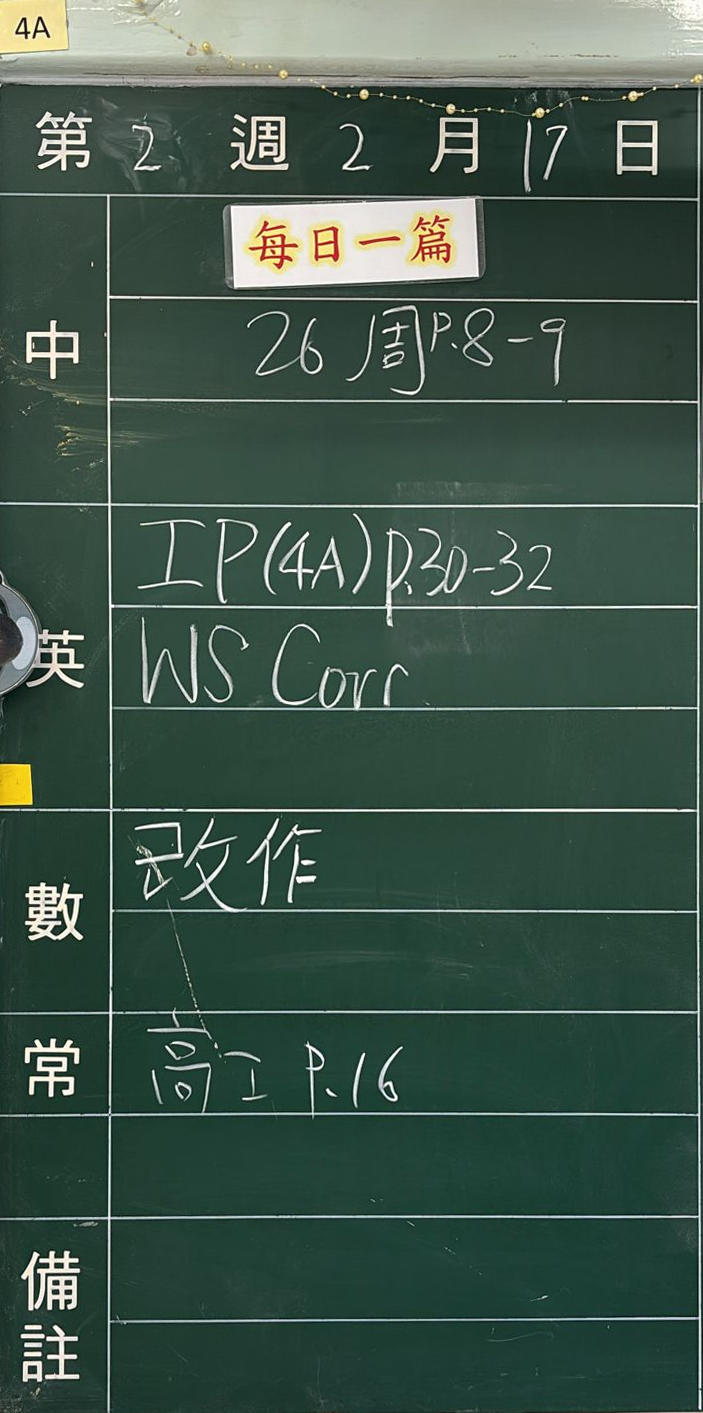 4A
第 2 週 2 月 17 日
每日一篇
中
26 周 P.8-9
IP(4A) p.30-32
英
WS Corr
改作
數
常
高工 P.16
備註